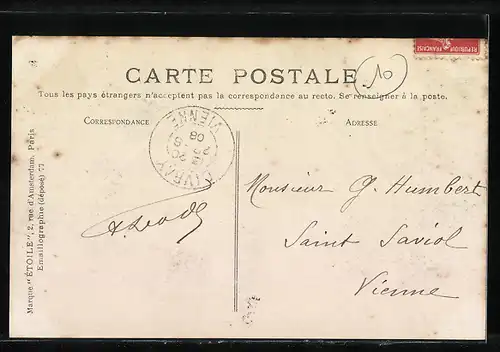 REPUBLIQUE FRANÇAISE
10
CARTE POSTALE
Tous les pays étrangers n'acceptent pas la correspondance au recto. Se renseigner à la poste.
CORRESPONDANCE
ADRESSE
CIVRAY
VIENNE
08
Monsieur G. Humbert
Saint Saviol
Vienne
Marque "ÉTOILE", 2, rue d'Amsterdam, Paris
Emaillographie (déposé) 77